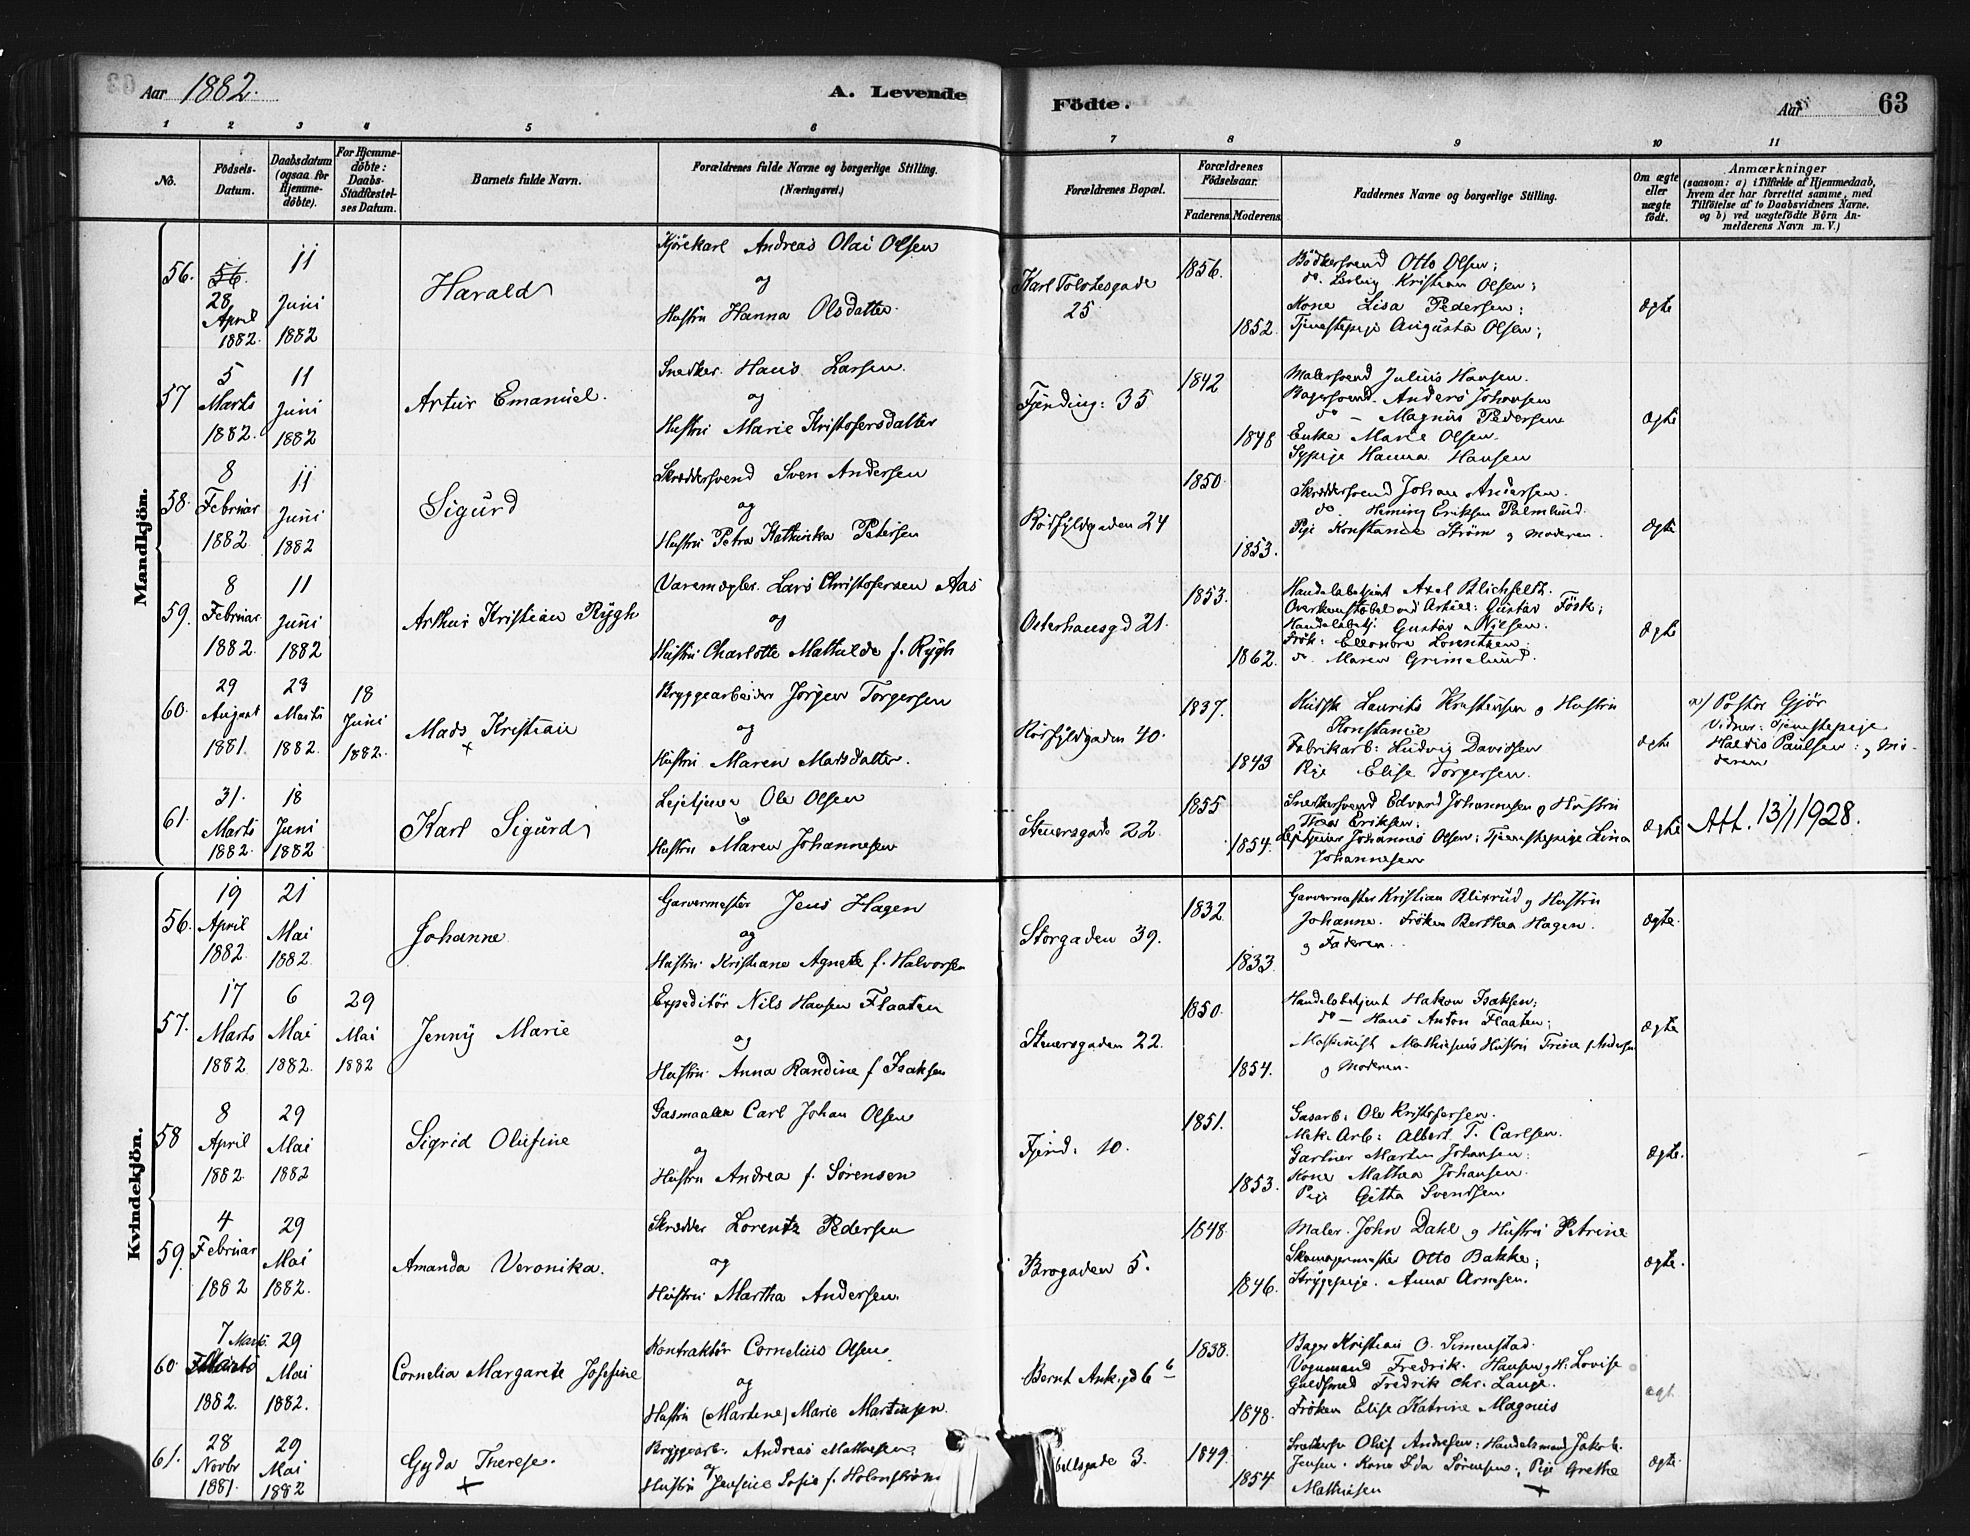 Aar 1882.
A. Levende
Födte.
Aar
63
1 2 3 4 5 6 7 8 9 10 11
No.
Födsels-Datum.
Daabsdatum (ogsaa for Hjemme-döbte).
For Hjemme-döbte: Daabs-Stadfæstel-ses Datum.
Barnets fulde Navn.
Forældrenes fulde Navne og borgerlige Stilling.
(Næringsvei.)
Forældrenes Bopæl.
Forældrenes Födselsaar.
Faderens. Moderens.
Faddernes Navne og borgerlige Stilling.
Om ægte eller uægte födt.
Anmærkninger
(saasom: a) i Tilfælde af Hjemmedaab,
hvem der har forrettet samme, med
Tilföielse af to Daabsvidners Navne.
og b) ved uægtefödte Börn An-
melderens Navn m. V.)
Mandkjön.
56. 56. 28 April 1882. 11 Juni 1882
Harald
Kjörekarl Andreas Olai Olsen
og
Hustru Hanna Olsdatter.
25.
1856. 1852.
Bödkersvend Otto Olsen;
do. Kristian Olsen;
Kone Lisa Pedersen;
Tjenestepige Augusta Olsen;
ægte
57 5 Marts 1882. 11 Juni 1882
Artur Emanuel.
Snedker. Hans Larsen.
og
Hustru Marie Kristofersdatter
Fjerding: 35
1842 1848
Malersvend Julius Hansen.
Bagersvend. Anders Johansen
do — Magnus Pedersen
Enke Marie Olsen.
Sypige Hanna Hansen
ægte
58. 8 Februar 1882. 11 Juni 1882
Sigurd
Skræddersvend Sven Andersen
og
Hustru Petra Kathinka Petersen
Rörfyldgaden 24
1850. 1853.
Skræddersvend Johan Andersen.
do. Heming Eriksen Palmlund.
Pige Konstance Ström og Moderen.
ægte
59. 8 Februar 1882. 11 Juni 1882
Arthur Kristian Rygh
Varemægler. Lars Christofersen Aas
og
Hustru Charlotte Mathilde f. Rygh
Osterhausgd 21.
1853. 1862.
Handelsbetjent Axel Blichfeldt.
Handelsbetj. Gustav Nilsen.
Frök: Elleonora Lorentzen;
do. Maren Grimelund.
ægte
60. 29 August 1881. 23 Marts 1882. 18 Juni 1882.
Mads Kristian
+
Bryggearbeider Jörgen Torgersen
og
Hustru. Maren Madsdatter.
Rörfyldgaden 40.
1837. 1843
Laurits Kristensen og Hustru
Konstancie
Fabrikarb: Ludvig Davidsen
Pige Elise Torgersen.
ægte
a/ Pastor Gjör
Vidner: Tjenestepige
Haldis Paulsen: og Mo-
deren
61. 31. Marts 1882. 18 Juni 1882
Karl Sigurd
Leietjener Ole Olsen
og
Hustru Maren Johannesen
Steensgade 22.
1855 1854.
Snedkersvend Edvard Johannesen og Hustru
Thea Eriksen;
Leietjener Johannes Olsen; Tjenestepige Lina
Johannesen
ægte
Att. 13/1 1928.
Kvindekjön.
56. 19 April 1882. 21 Mai 1882.
Johanne
Garvermester Jens Hagen
og
Hustru Kristiane Agnete f. Halvorsen
Storgaden 39.
1832. 1833.
Garvermester Kristian Blixrud og Hustru
Johanne. Fröken Berthea Hagen.
og Faderen.
ægte.
57. 17 Marts 1882. 6 Mai 1882. 29 Mai 1882
Jenny Marie
Expeditör Nils Hansen Flaaten
og
Hustru. Anna Randine f Isaksen
Steensgaden 22.
1850. 1854.
Handelsbetjent Hakon Isaksen;
do — Hans Anton Flaaten;
Maskinist Mathisens Hustru Trine f Andersen
og Moderen.
ægte
58 8 April 1882. 29 Mai 1882
Sigrid Olufine
Gasmaaler Carl Johan Olsen
og
Hustru Andrea f. Sörensen
Fjerd: 10.
1851. 1853.
Gasarb: Ole Kristofersen.
Mek. Arb: Albert T. Carlsen.
Gartner Martin Johansen:
Kone Mathea Johansen.
Pige Githa Svendsen
ægte.
59. 4 Februar 1882 29 Mai 1882.
Amanda Veronika.
Skrædder Lorentz Pedersen
og
Hustru Martha Andersen.
Brogaden 5.
1848. 1846.
Maler. John Dahl og Hustru Petrine
Skomagermester Otto Bakke;
Strygepige. Anna Arnesen.
ægte.
60. 7 Marts. 1882. 29 Mai 1882.
Cornelia Margarete Josefine
Kontraktör Cornelius Olsen
og
Hustru (Martene) Marie Martinsen.
Bernt Ank.gd 6 b
1838. 1848.
Bager Kristian O. Simenstad.
Vognmand Fredrik. Hansen og H. Lovise
Guldsmed Fredrik Chr. Lange.
Fröken Elise Katrine Magnus
ægt.
61. 28 Novbr 1881. 29 Mai 1882
Gyda Therese.
+
Bryggearb. Andreas Mathisen
og
Hustru Jensine Sofie f. Holmström
3.
1849. 1854
Oluf Andresen: Handelsmand Jakob.
Jensen. Kone Ida Sörensen; Pige Grethe
Mathisen +
ægte.